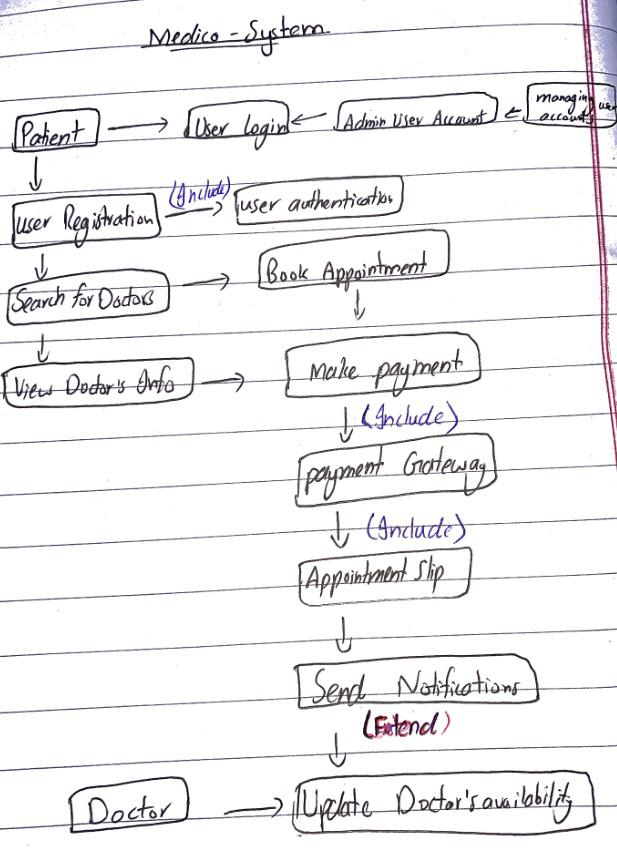 Medico - System
Patient
User login
Admin User Account
managing user
accounts
(Include)
user Registration
user authentication
Search for Doctors
Book Appointment
View Doctor's Info
Make payment
(Include)
payment Gateway
(Include)
Appointment Slip
Send Notifications
(Extend)
Doctor
Update Doctor's availability